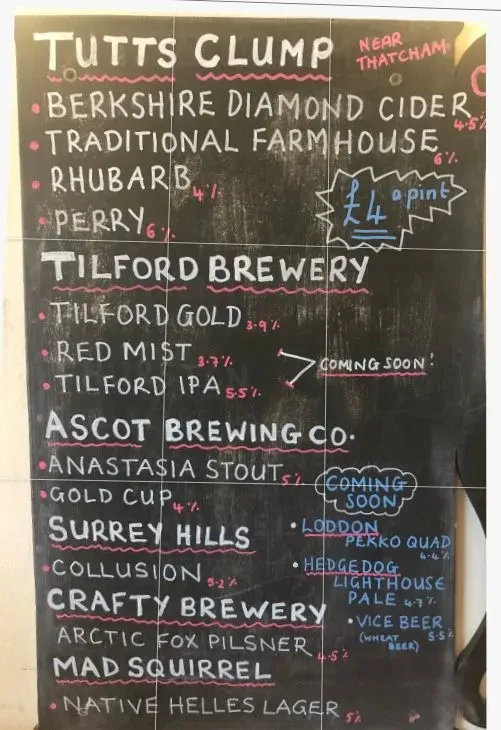 TUTTS CLUMP
NEAR
THATCHAM
• BERKSHIRE DIAMOND CIDER 4.5%
• TRADITIONAL FARMHOUSE 6%
• RHUBARB 4%
£4 a pint
• PERRY 6%
TILFORD BREWERY
• TILFORD GOLD 3.9%
• RED MIST 3.7%
COMING SOON!
• TILFORD IPA 5.5%
ASCOT BREWING CO.
• ANASTASIA STOUT 5%
• GOLD CUP 4%
SURREY HILLS
• COLLUSION 5.2%
CRAFTY BREWERY
ARCTIC FOX PILSNER 4.5%
MAD SQUIRREL
• NATIVE HELLES LAGER 5%
COMING
SOON
• LODDON
PERKO QUAD
4.4%
• HEDGEDOG
LIGHTHOUSE
PALE 4.7%
• VICE BEER
(WHEAT 5.5%
BEER)